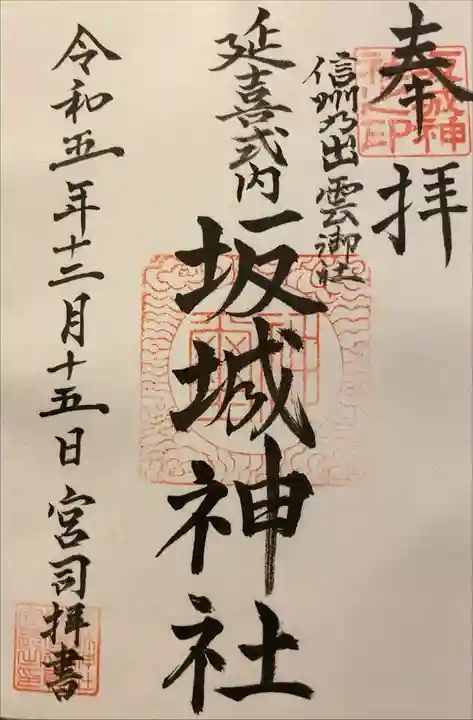 奉拝
信州乃出雲御社
延喜式内
坂城神社
令和五年十二月十五日 宮司拝書